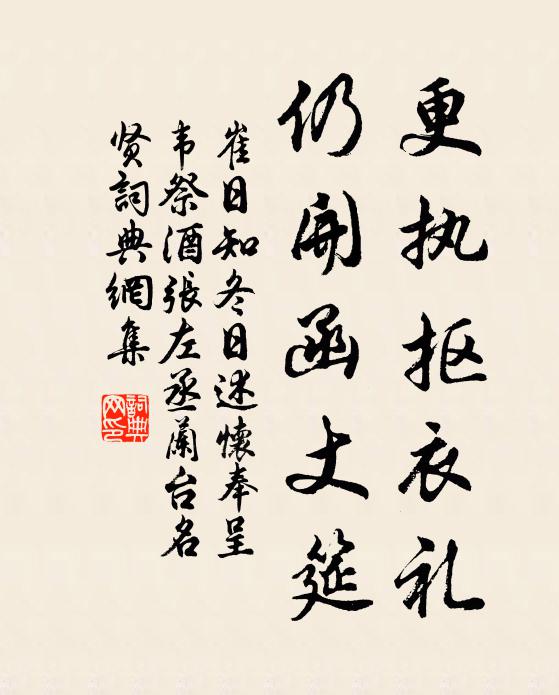 更执抠衣礼
仍開函丈筵
崔日知冬日述懷奉呈
韦祭酒張左丞蘭台名
贤詞典網集
詞典
网印